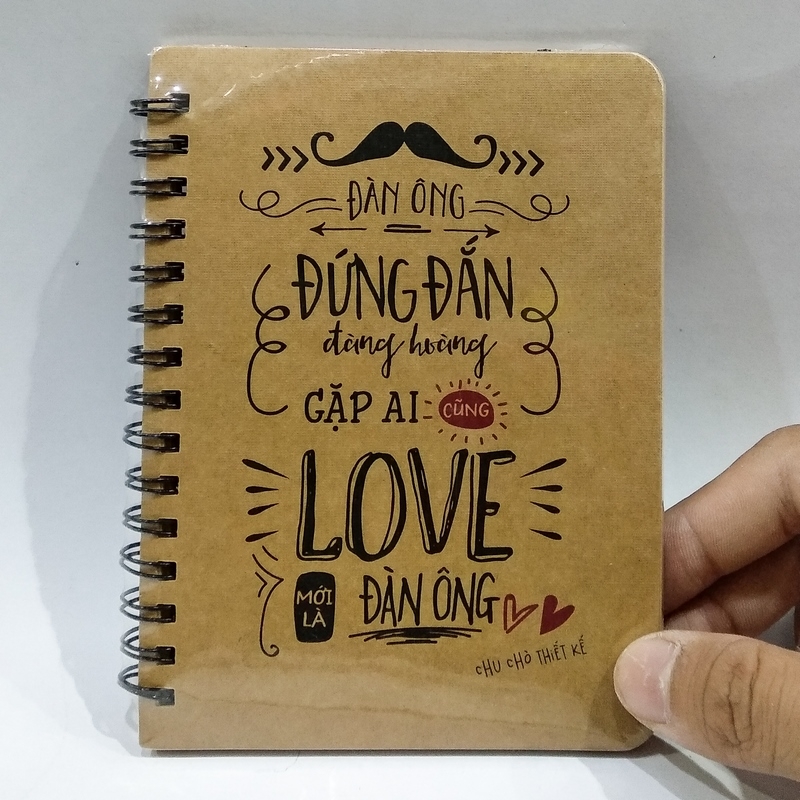 ĐÀN ÔNG
ĐỨNG ĐẮN
đàng hoàng
GẶP AI CŨNG
LOVE
MỚI
LÀ
ĐÀN ÔNG
CHU CHÒ THIẾT KẾ